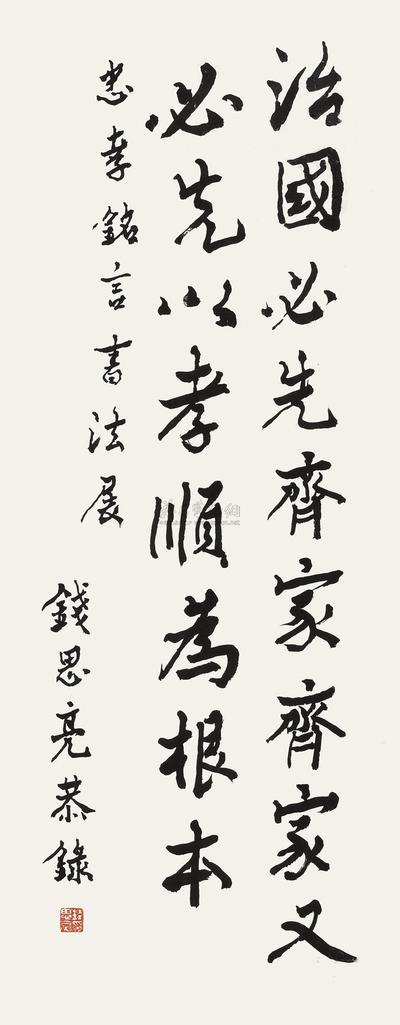 治國必先齊家齊家又
必先以孝順為根本
忠孝銘言書法展
錢思亮恭錄